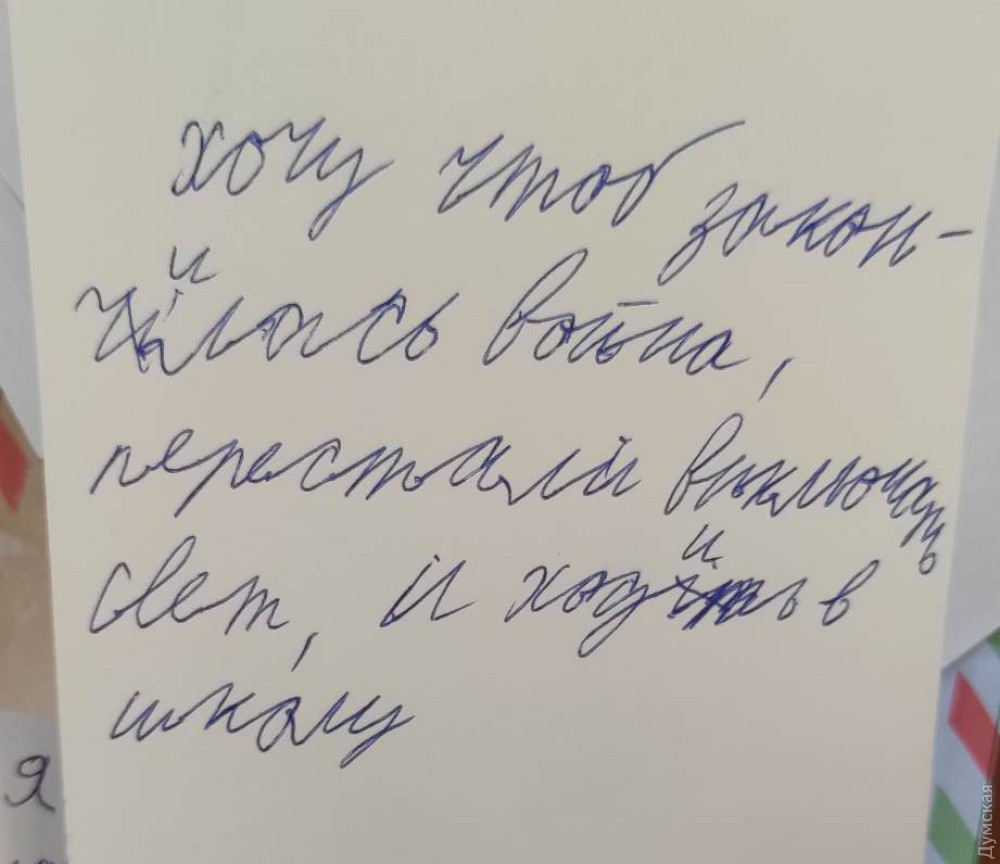 хочу чтоб закон-
чилась война,
перестали выключать
свет, и ходить в
школу
Я
Думская